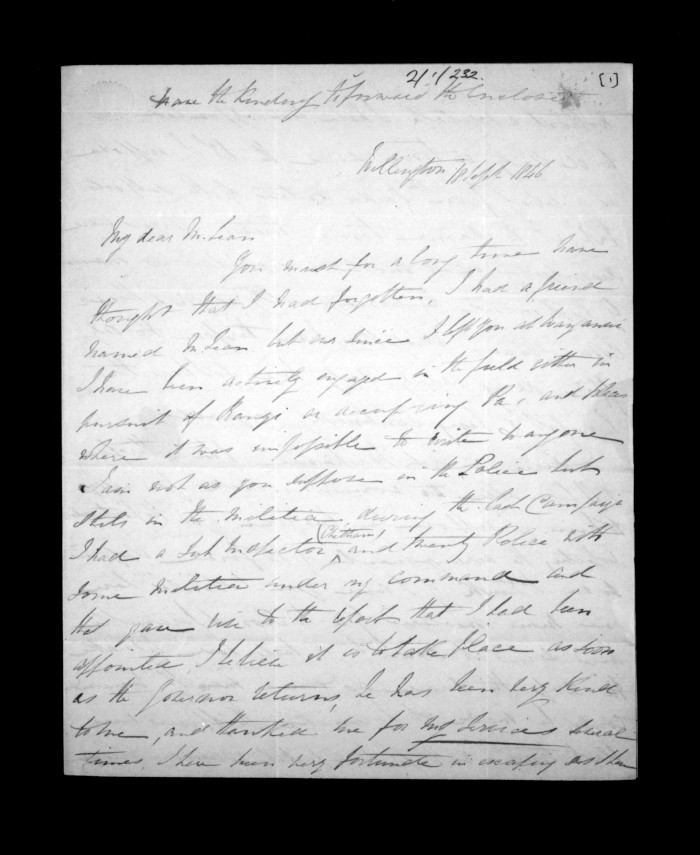 21/1/232.
[1]
have the kindness to forward the enclosed
Wellington 10 Sept 1846
My dear McLean
You must for a long time have
thought that I had forgotten, I had a friend
named McLean but as since I left you at Wanganui
I have been actively engaged in the field either in
pursuit of Rangi or occupying Pa's and places
where it was impossible to write to anyone
I am not as you suppose in the Police but
still in the Militia, during the last Campaign
(Chetham)
I had a Sub Inspector ^ and twenty Police with
some Militia under my command and
that gave rise to the report that I had been
appointed, I believe it is to take place as soon
as the Governor returns, he has been very kind
to me, and thanked me for my services several
times, I have been very fortunate in escaping as there